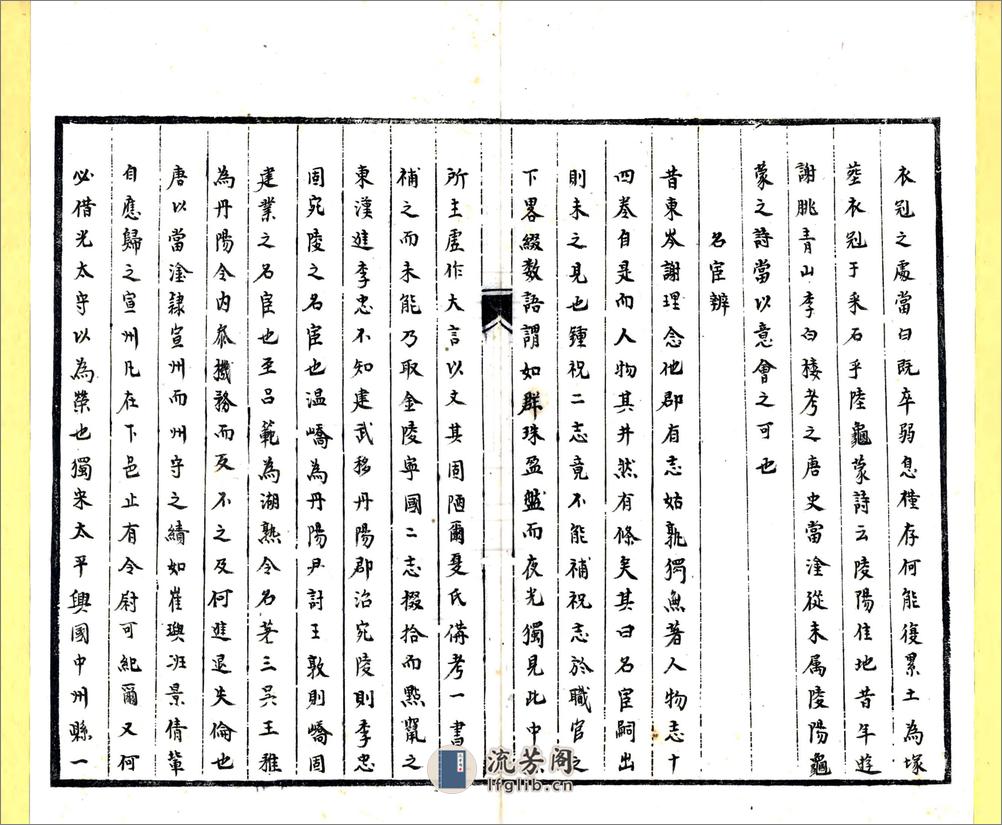 衣冠之處當日既卒弱息權存何能復累土為塚
塟衣冠于采石乎陸龜蒙詩云陵陽佳地昔年遊
謝眺青山李白樓考之唐史當塗從未属陵陽龜
蒙之詩當以意會之可也
名宦辨
昔東岑謝理念他郡有志姑孰獨無著人物志十
四卷自是而人物其井然有條矣其曰名宦嗣出
則未之見也鍾祝二志竟不能補祝志於職官之
下畧綴数語謂如群珠盈盤而夜光獨見此中
所主虛作大言以文其固陋爾夏氏備考一書
補之而未能乃取金陵寧國二志掇拾而點竄之
東漢進李忠不知建武移丹陽郡治宛陵則李忠
固宛陵之名宦也温嶠為丹陽尹討王敦則嶠固
建業之名宦也至吕範為湖熟令名著三吴王雅
為丹陽令内叅機務而反不之及何進退失倫也
唐以當塗隷宣州而州守之績如崔璵班景倩輩
自應歸之宣州凡在下邑止有令尉可紀爾又何
必借光太守以為榮也獨宋太平興國中州縣一
流芳阁
lfglib.cn